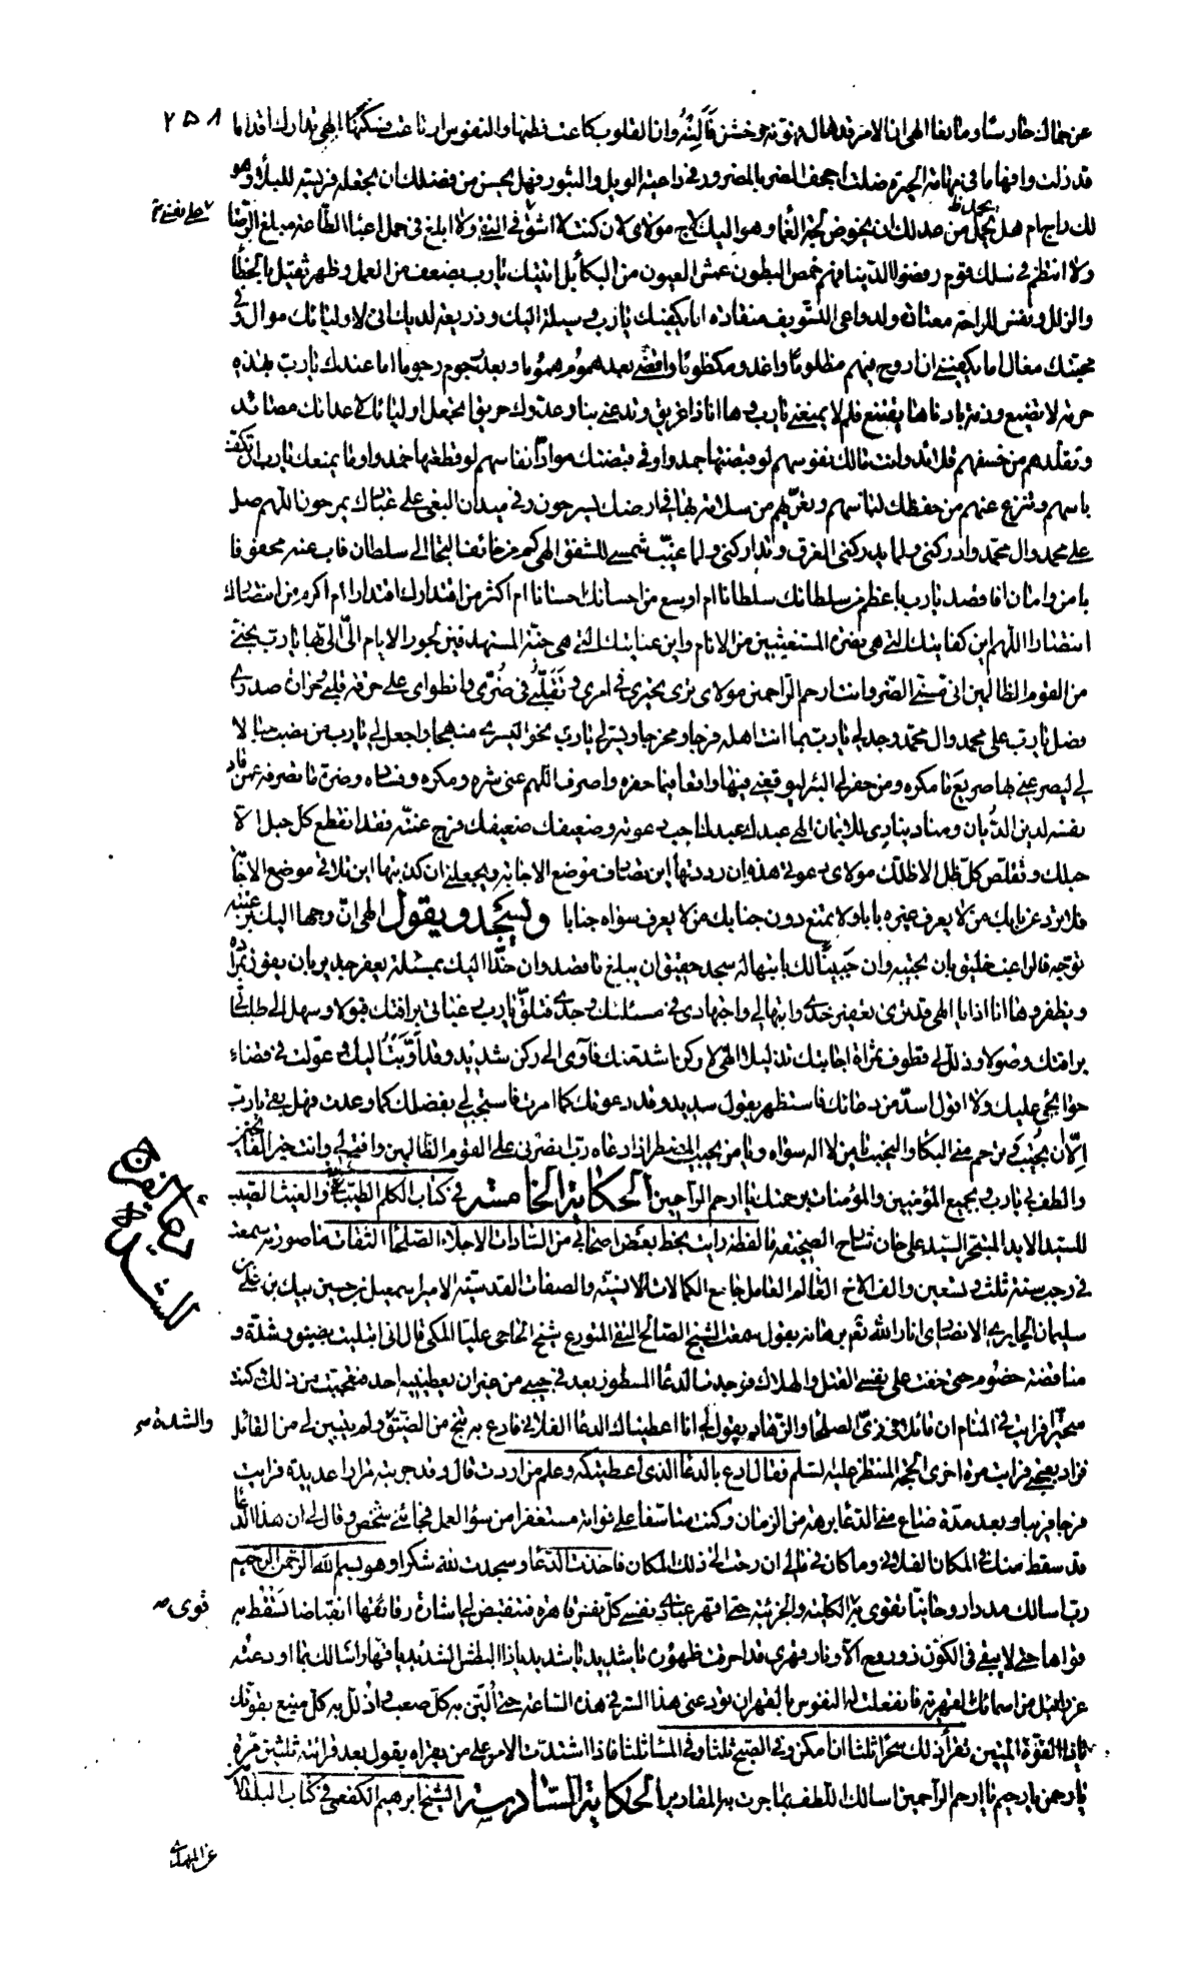 عن خالك حارسا ومانعا الهي ان الامر قد هال فهونه وخشن فالنه وان القلوب كاعت فطمنها والنفوس ارتاعت فسكنها الهي تدارك اقداما ٢٥٨
قد زلت وافهاما في مهامة الحيرة ضلت اجحف الضر بالمضرور في داعية الويل والثبور فهل يحسن من فضلك ان تجعله فريسة للبلاء وهو
لك راج ام هل يجمل من عدلك ان يخوض لجة الغماء وهو اليك لاج مولاي لان كنت لا اشق في التقى ولا ابلغ في حمل اعباء الطاعة مبلغ الرضا
على نفسي
ولا انتظم في سلك قوم رفضوا الدنيا فهم خمص البطون عمش العيون من البكا بل اتيتك يارب بضعف من العمل وظهر ثقيل بالخطا
والزلل ونفس للراحة معتادة ولدواعي التسويف منقادة اما يكفيك يا رب وسيلة اليك وذريعة لديك اني لاوليائك موال وفي
محبتك مغال اما يكفيني ان اروح فيهم مظلوما واغدو مكظوما واقضي بعد هموم هموما وبعد وجوم وجوما اما عندك يارب بهذه
حرمة لا تضيع وذمة بادناها يقتنع فلم لا تمنعني يارب وها انا ذا غريق وتدعني بنار عدوك حريق اتجعل اوليائك لاعدائك مصائد
وتقلدهم من خسفهم قلائد وانت مالك نفوسهم لو قبضتها جمدوا وفي قبضتك مواد انفاسهم لو قطعتها خمدوا وما يمنعك يارب ان تكف
باسهم وتنزع عنهم من حفظك لباسهم وتعريهم من سلامة بها في ارضك يسرحون وفي ميدان البغي على عبادك يمرحون اللهم صل
على محمد وال محمد وادركني ولما يدركني الغرق وتداركني ولما غيب شمسي للشفق الهي كم من خائف التجا الى سلطان فاب عنه محفوفا
بامن وامان افاقصد يارب باعظم من سلطانك سلطانا ام اوسع من احسانك احسانا ام اكثر من اقتدارك اقتدارا ام اكرم من انتصارك
انتصارا اللهم اين كفايتك التي هي نصرة المستغيثين من الانام واين عنايتك التي هي جنة المستهدفين لجور الايام الي الي بها يارب نجني
من القوم الظالمين اني مسني الضر وانت ارحم الراحمين مولاي ترى تحيري في امري وتقلبي في ضري وانطواي على حرقة قلبي وحرارة صدري
فصل يارب على محمد وال محمد وجد لي يارب بما انت اهله فرجا ومخرجا ويسر لي يارب نحو اليسرى منهجا واجعل لي يارب من نصب حبالا
لي ليصرعني بها صريع ما مكره ومن حفر لي البئر ليوقعني فيها واقعا فيما حفره واصرف اللهم عني شره ومكره وفساده وضره ما تصرفه عمن قاد
نفسه لدين الديان ومناد ينادي للايمان الهي عبدك عبدك اجب دعوته وضعيفك ضعيفك فرج غمته فقد انقطع كل حبل الا
حبلك وتقلص كل ظل الا ظلك مولاي دعوتي هذه ان رددتها اين تصادف موضع الاجابة ومخيلتي هذه ان كذبتها اين تلاقي موضع الاجابة
فلا ترد عن بابك من لا يعرف غيره بابا ولا تمنع دون جنابك من لا يعرف سواه جنابا ويسجد ويقول الهي ان وجها اليك برغبته
توجه فالراغب خليق بان تجيبه وان جبينا لك بابتهاله سجد حقيق ان يبلغ ما قصد وان خدا اليك بمسئلته يعفر جدير بان يفوز بمراده
ويظفر وها انا ذا يا الهي قد ترى تعفير خدي وابتهالي واجتهادي في مسئلتك وجدي فتلق يارب رغباتي برافتك قبولا وسهل الي طلباتي
برافتك وصولا وذلل لي قطوف ثمرات اجابتك تذليلا الهي لا ركن اشد منك فاوي الى ركن شديد وقد اويت اليك وعولت في قضاء
حوائجي عليك ولا قول اسد من دعائك فاستظهر بقول سديد وقد دعوتك كما امرت فاستجب لي بفضلك كما وعدت فهل بقي يارب
الا ان تجيب وترحم مني البكا والنحيب يا من لا اله سواه ويا من يجيب المضطر اذا دعاه رب انصرني على القوم الظالمين وافتح لي وانت خير الفاتحين
والطف بي يارب وبجميع المؤمنين والمؤمنات برحمتك يا ارحم الراحمين الحكاية الخامسة في كتاب الكلم الطيب والغيث الصيب
دعاء الفرج للشدة
للسيد الايد المتبحر السيد علي خان شارح الصحيفة ما لفظه رايت بخط بعض اصحابي من السادات الاجلاء الصلحاء الثقات ما صورته سمعت
في رجب سنة ثلث وتسعين والف الاخ العالم العامل جامع الكمالات الانسية والصفات القدسية الامير اسمعيل بن حسين بيك بن علي بن
سليمان الجابري الانصاري انار الله تعم برهانه يقول سمعت الشيخ الصالح التقي المتورع شيخ الحاجي عليا المكي قال اني ابتليت بضيق وشدة و
مناقضة خصوم حتى خفت على نفسي القتل والهلاك فوجدت الدعاء المسطور بعد في جيبي من غير ان يعطينيه احد فتعجبت من ذلك وكنت
متحيرا فرايت في المنام ان قائلا في زي الصلحاء والزهاد يقول لي انا اعطيناك الدعاء الفلاني فادع به تنج من الضيق ولم يتبين لي من القائل
والشدة صح
فزاد تعجبي فرايت مرة اخرى الحجة المنتظر عليه السلم فقال ادع بالدعاء الذي اعطيتكه وعلم من اردت قال وقد جربته مرارا عديدة فرايت
فرجا قريبا وبعد مدة ضاع مني الدعاء برهة من الزمان وكنت متاسفا على فواته مستغفرا من سوء العمل فجائني شخص وقال لي ان هذا الدعاء
قد سقط منك في المكان الفلاني وما كان في بالي ان رحت الى ذلك المكان فاخذت الدعاء وسجدت لله شكرا وهو بسم الله الرحمن الرحيم
رب اسالك مددا روحانيا تقوى به الكلية والجزئية حتى اقهر عبادي نفسي كل نفس قاهرة فتنقبض لي اشارة رقائقها انقباضا تسقط به
قوى صح
قواها حتى لا يبقى في الكون ذو روح الا ونار قهري قد احرقت ظهوره يا شديد يا شديد يا ذا البطش الشديد يا قهار اسالك بما اودعته
عزرائيل من اسمائك القهرية فانفعلت له النفوس بالقهر ان تودعني هذا السر في هذه الساعة حتى الين به كل صعب واذلل به كل منيع بقوتك
يا ذا القوة المتين تقرأ ذلك سحرا ثلثا ان امكن وفي الصبح ثلثا وفي المساء ثلثا فاذا اشتدت الامر على من يقراه يقول بعد قرائته ثلثين مرة
يا رحمن يا رحيم يا ارحم الراحمين اسالك اللطف بما جرت به المقادير الحكاية السادسة الشيخ ابرهيم الكفعمي في كتاب البلد الامين
عن المهدي